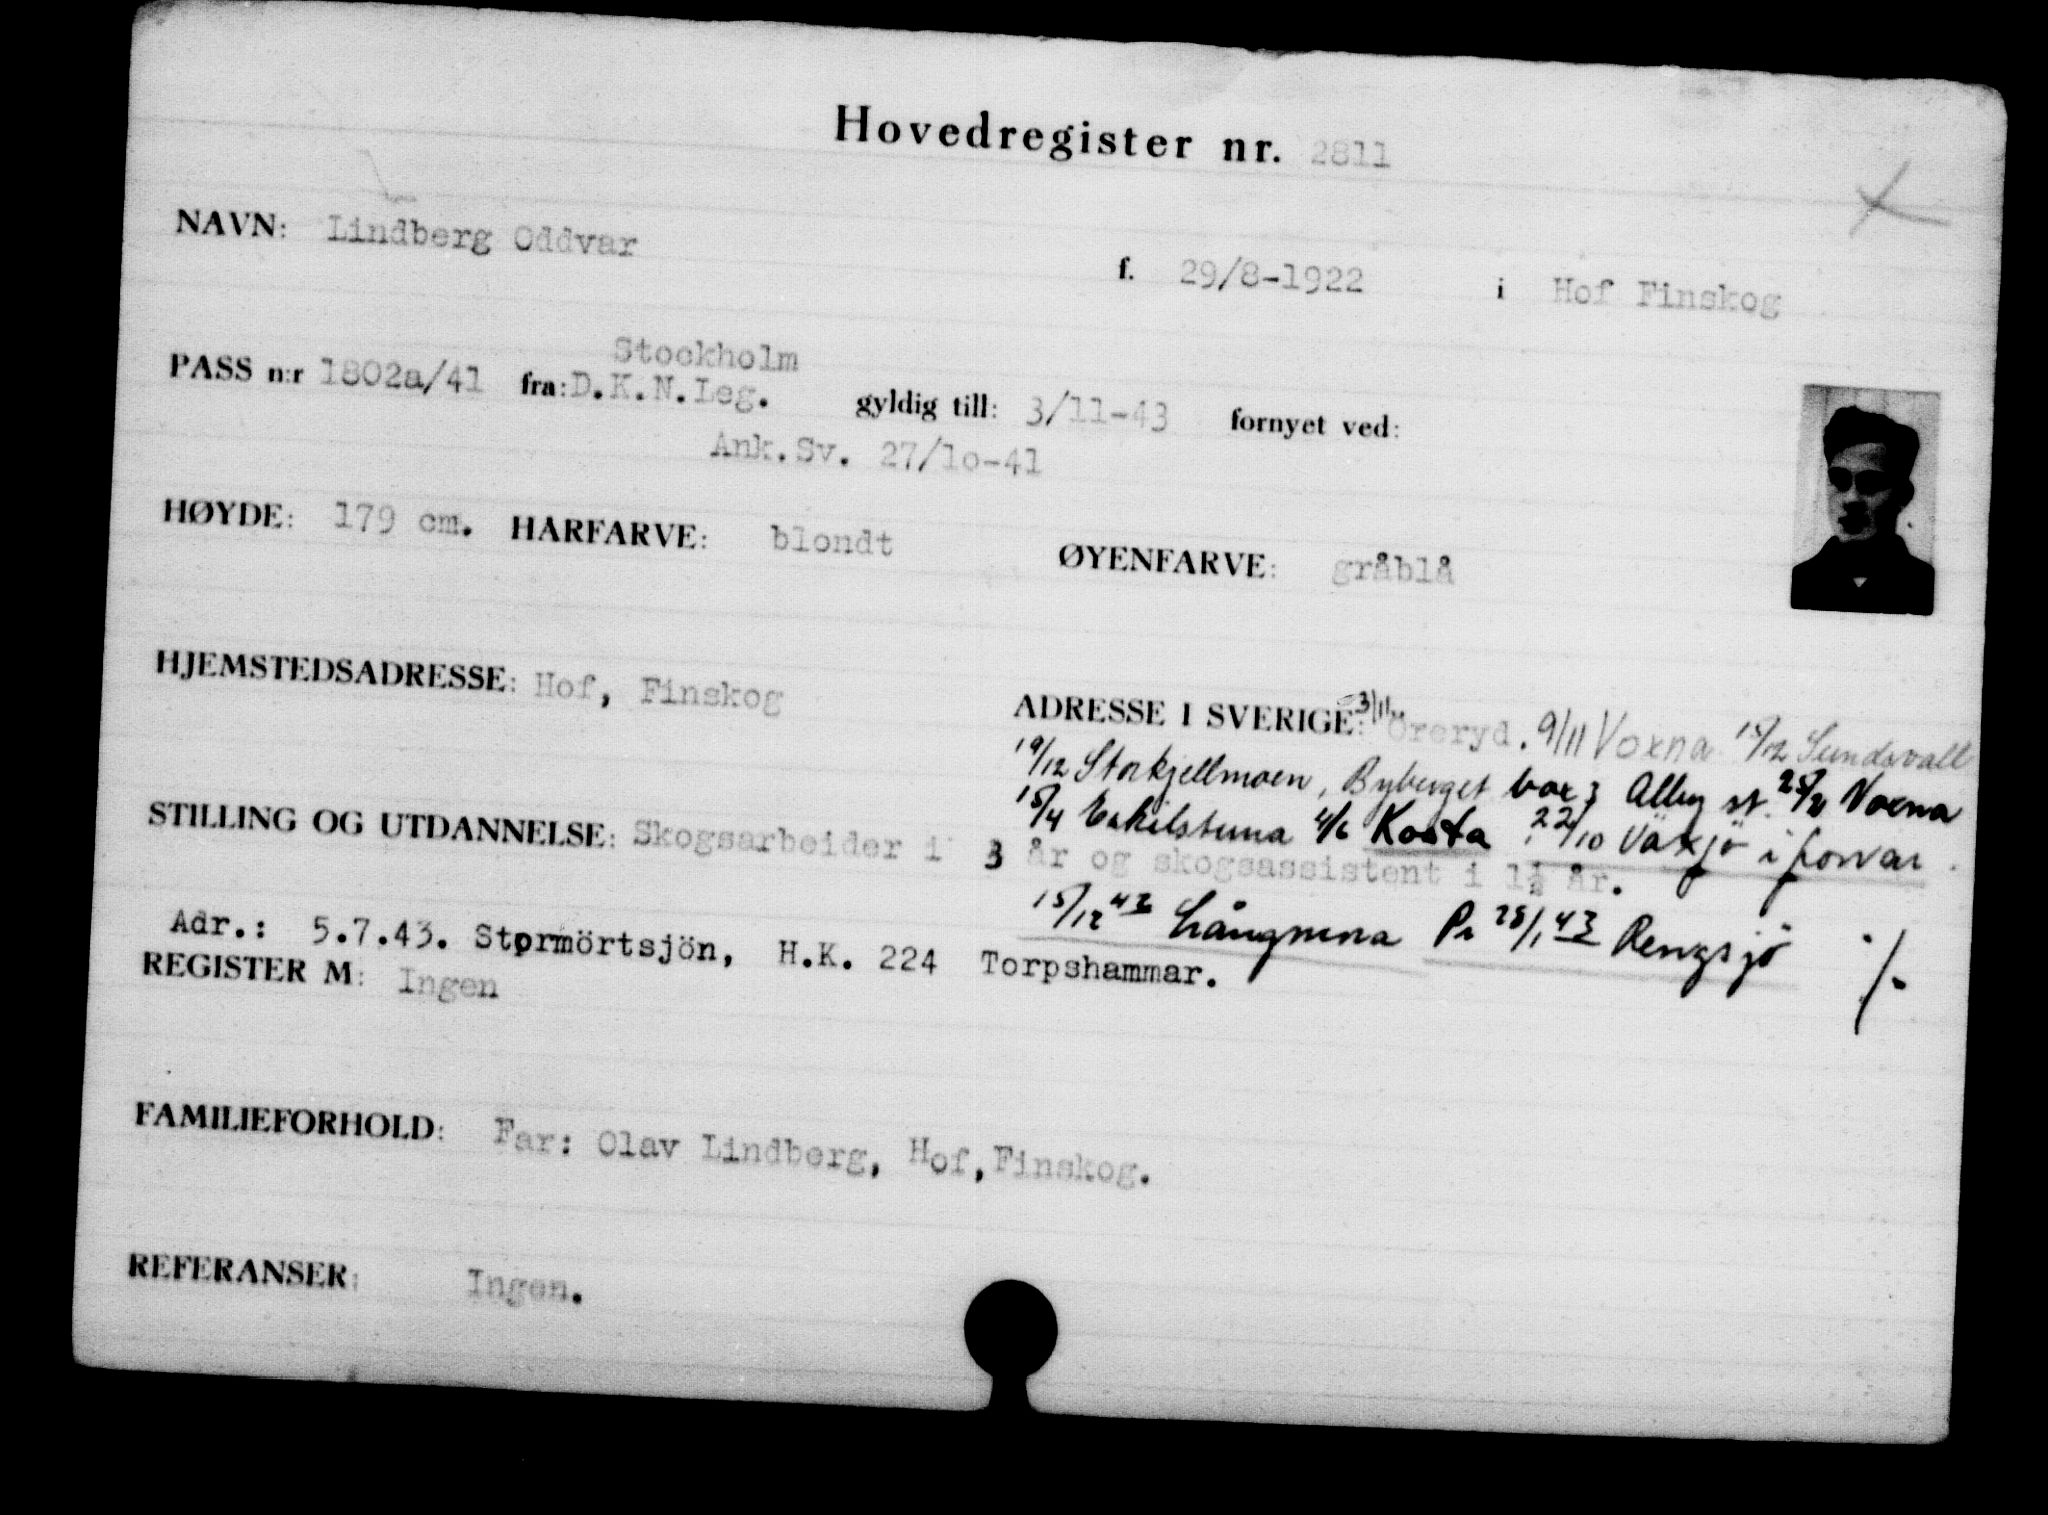 Hovedregister nr. 2811
NAVN: Lindberg Oddvar f. 29/8-1922 i Hof Finskog
Stockholm
PASS n:r 1802a/41 fra: D.K.N.Leg. gyldig till: 3/11-43 fornyet ved:
Ank.Sv. 27/10-41
HØYDE: 179 cm. HARFARVE: blondt ØYENFARVE: gråblå
HJEMSTEDSADRESSE: Hof, Finskog
ADRESSE I SVERIGE: 3/11 Öreryd. 9/11 Voxna 15/12 Sundsvall
19/12 Storkjellmoen, Byberget box 3 Alby st. Voxna
15/4 Eskilstuna 4/6 Kosta 22/10 Växjö i forvar.
STILLING OG UTDANNELSE: Skogsarbeider i 3 år og skogsassistent i 1½ år.
15/12 42 Långmora 28/1 43 Rengsjö ./.
Adr.: 5.7.43. Stormörtsjön, H.K. 224 Torpshammar.
REGISTER M: Ingen
FAMILIEFORHOLD: Far: Olav Lindberg, Hof, Finskog.
REFERANSER: Ingen.